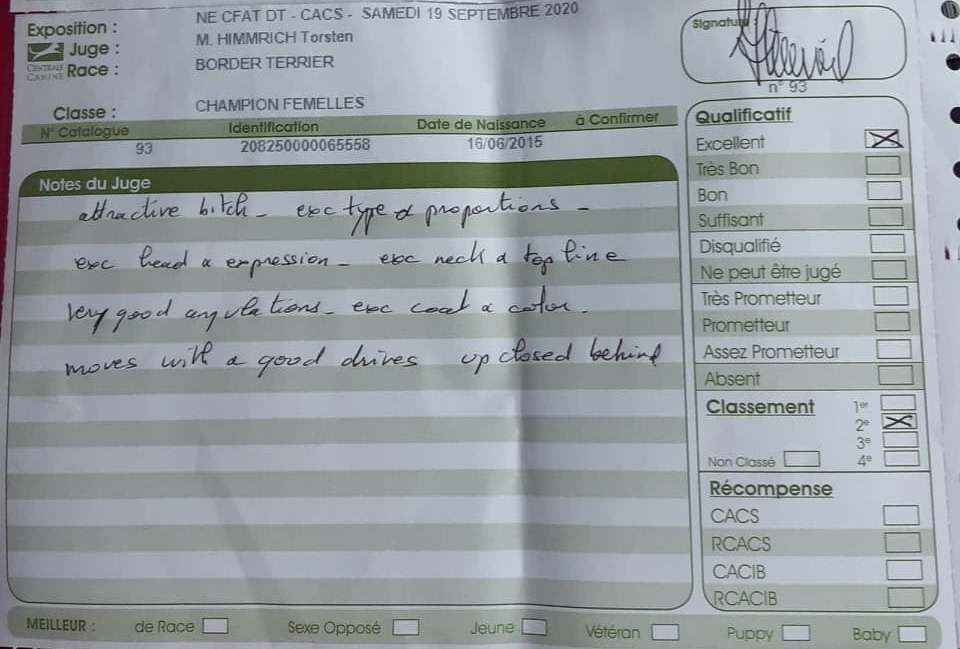 Exposition : NE CFAT DT - CACS - SAMEDI 19 SEPTEMBRE 2020
Juge : M. HIMMRICH Torsten
CENTRALE CANINE
Race : BORDER TERRIER
Classe : CHAMPION FEMELLES
Signature :
n° 93
N° Catalogue Identification Date de Naissance à Confirmer
93 208250000065558 16/06/2015
Notes du Juge
attractive bitch - exc type & proportions -
exc head & expression - exc neck & top line
very good angulations - exc coat & color.
moves with a good drives up closed behind
Qualificatif
Excellent
Très Bon
Bon
Suffisant
Disqualifié
Ne peut être jugé
Très Prometteur
Prometteur
Assez Prometteur
Absent
Classement 1er
2e
3e
Non Classé 4e
Récompense
CACS
RCACS
CACIB
RCACIB
MEILLEUR : de Race Sexe Opposé Jeune Vétéran Puppy Baby